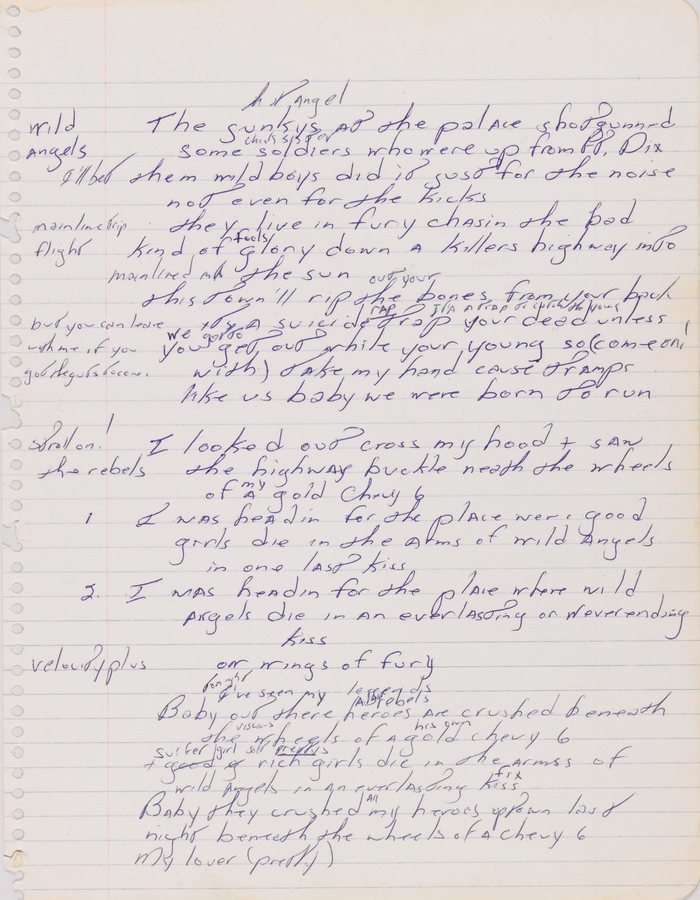 Angel
Wild The gunkys at the palace shotgunned
Angels some soldiers who were up from Ft. Dix
I'll bet them wild boys did it just for the noise
not even for the kicks
mainline trip they live in fury chasin the bad
flight kind of fools glory down a killers highway into
mainlined into the sun
out your
this town'll rip the bones from your back
rap its a trap to catch the young
but you can leave its a suicide trap your dead unless
we gotta
with me if you you get out while your young so (come on!
got the guts to come. with) take my hand cause tramps
like us baby we were born to run
stroll on! I looked out cross my hood + saw
the rebels the highway buckle neath the wheels
my
of a gold Chevy 6
1 I was headin for the place were good
girls die in the arms of wild Angels
in one last kiss
2. I was headin for the place where wild
Angels die in an everlasting or neverending
kiss
velocity plus on wings of fury
tonight
I've seen my legends
rebels
Baby out there heroes are crushed beneath
his own
the wheels of a gold chevy 6
girl
+ good rich girls die in the armss of
wild Angels in an everlasting kiss
all
Baby they crushed my heroes uptown last
night beneath the wheels of a chevy 6
My lover (pretty)